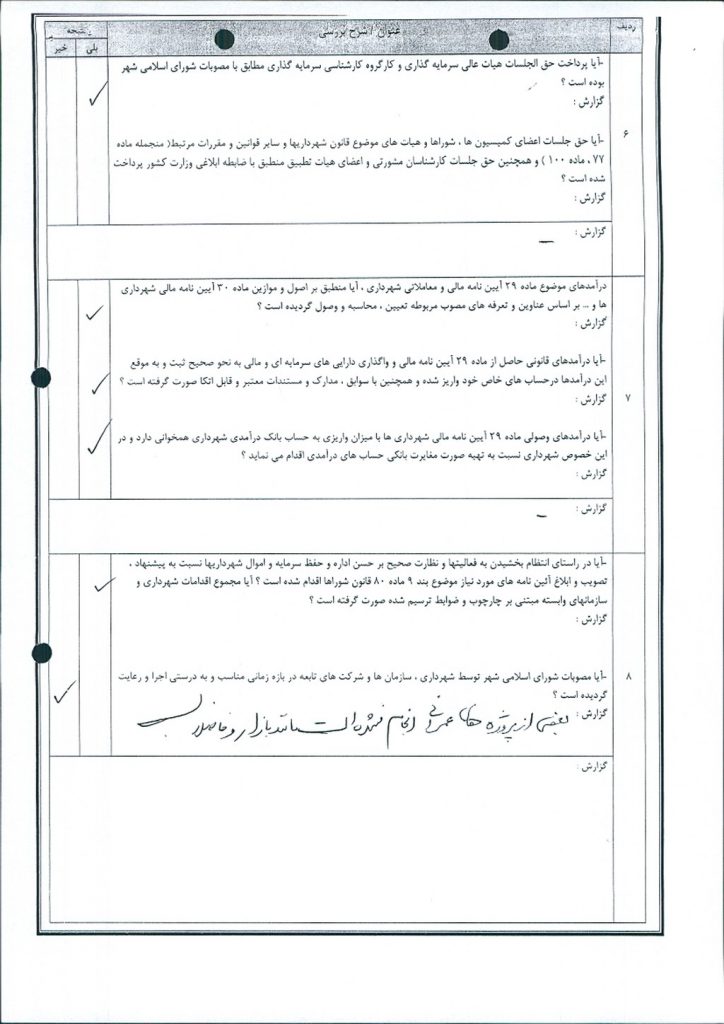 ردیف
عنوان / شرح بررسی
نتیجه
بلی
خیر
-آیا پرداخت حق الجلسات هیات عالی سرمایه گذاری و کارگروه کارشناسی سرمایه گذاری مطابق با مصوبات شورای اسلامی شهر
بوده است ؟
گزارش :
۶
-آیا حق جلسات اعضای کمیسیون ها ، شوراها و هیات های موضوع قانون شهرداریها و سایر قوانین و مقررات مرتبط( منجمله ماده
۷۷ ، ماده ۱۰۰ ) و همچنین حق جلسات کارشناسان مشورتی و اعضای هیات تطبیق منطبق با ضابطه ابلاغی وزارت کشور پرداخت
شده است ؟
گزارش :
گزارش :
–
درآمدهای موضوع ماده ۲۹ آیین نامه مالی و معاملاتی شهرداری ، آیا منطبق بر اصول و موازین ماده ۳۰ آیین نامه مالی شهرداری
ها و ... بر اساس عناوین و تعرفه های مصوب مربوطه تعیین ، محاسبه و وصول گردیده است ؟
گزارش :
-آیا درآمدهای قانونی حاصل از ماده ۲۹ آیین نامه مالی و واگذاری دارایی های سرمایه ای و مالی به نحو صحیح ثبت و به موقع
این درآمدها درحساب های خاص خود واریز شده و همچنین با سوابق ، مدارک و مستندات معتبر و قابل اتکا صورت گرفته است ؟
گزارش :
۷
-آیا درآمدهای وصولی ماده ۲۹ آیین نامه مالی شهرداری ها با میزان واریزی به حساب بانک درآمدی شهرداری همخوانی دارد و در
این خصوص شهرداری نسبت به تهیه صورت مغایرت بانکی حساب های درآمدی اقدام می نماید ؟
گزارش :
گزارش :
–
-آیا در راستای انتظام بخشیدن به فعالیتها و نظارت صحیح بر حسن اداره و حفظ سرمایه و اموال شهرداریها نسبت به پیشنهاد ،
تصویب و ابلاغ آئین نامه های مورد نیاز موضوع بند ۹ ماده ۸۰ قانون شوراها اقدام شده است ؟ آیا مجموع اقدامات شهرداری و
سازمانهای وابسته مبتنی بر چارچوب و ضوابط ترسیم شده صورت گرفته است ؟
گزارش :
۸
-آیا مصوبات شورای اسلامی شهر توسط شهرداری ، سازمان ها و شرکت های تابعه در بازه زمانی مناسب و به درستی اجرا و رعایت
گردیده است ؟
گزارش : بعضی از پروژه های عمرانی انجام نشده است مانند بازار و فاضلاب
گزارش :